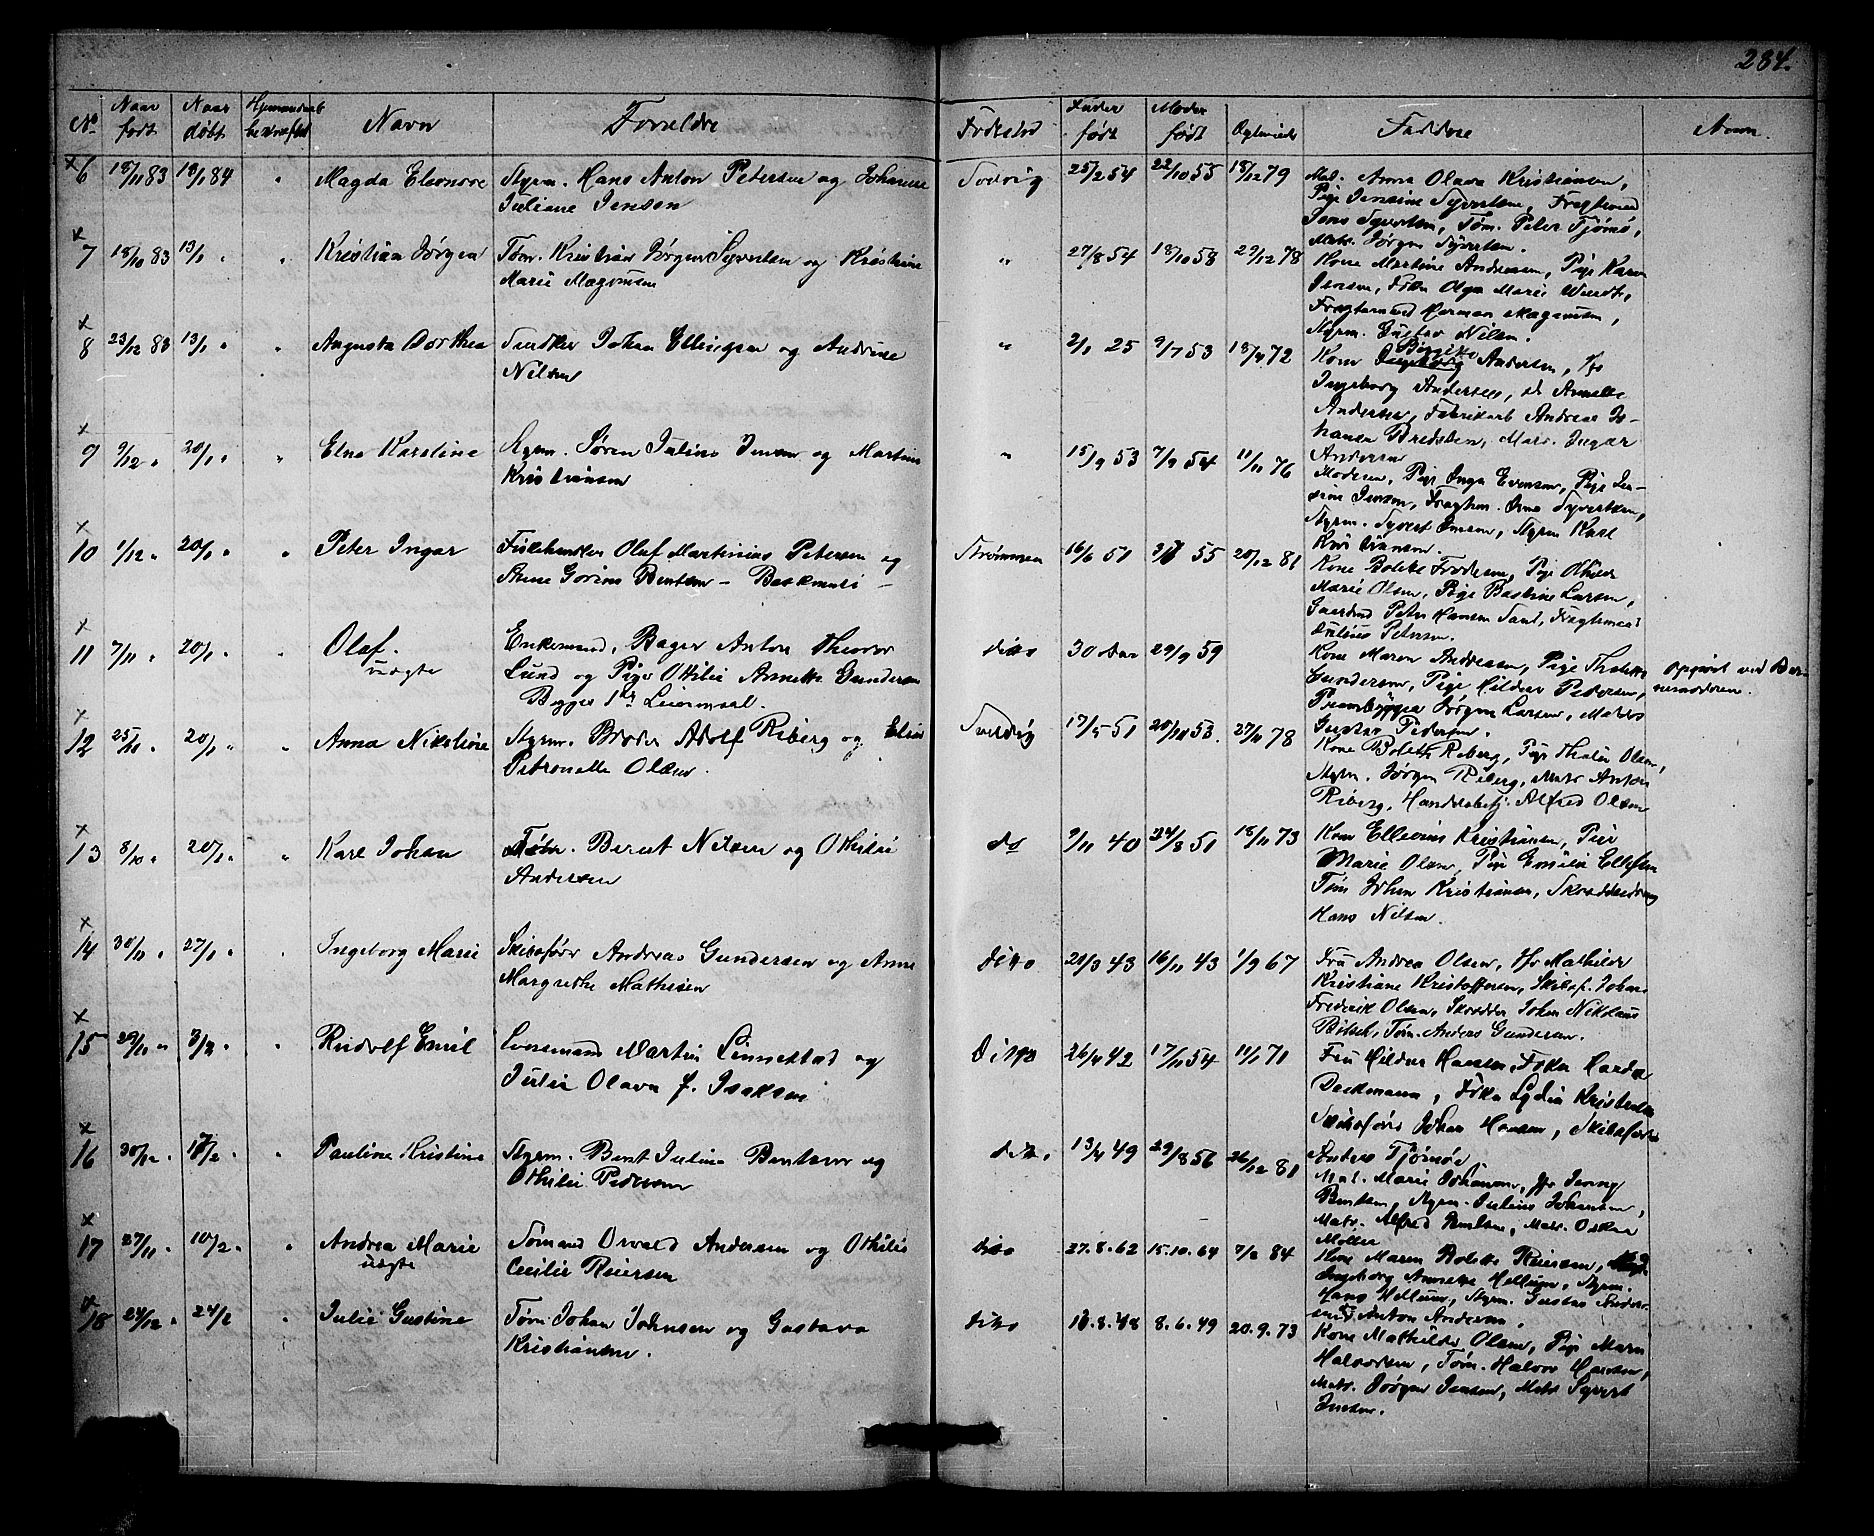 284.
No Naar født Naar døbt Navn Forældre Fødested Fader født Moder født Faddere Anm.
6 18/11 83 13/1 84 " Magda Eleonore Styrm. Hans Anton Petersen og Johanne Svelvig 25/2 54 22/10 55 18/12 79 Mad. Anna Olava Kristiansen,
Juliane Jensen Pige Jensine Syvertsen, Fragtmand
Jens Syvertsen, Tøm. Peter Tjømø,
Matr. Jørgen Syvertsen.
7 18/10 83 13/1 " " Kristian Jørgen Tøm. Kristian Jørgen Syvertsen og Kristine " 27/8 54 18/10 58 29/12 78 Kone Martine Andresen, Pige Karen
Marie Magnusen Jensen, Frkn Olga Marie Wendt,
Fragtemand Herman Magnusen,
Styrm. Gustav Nilsen.
8 23/12 83 13/1 " " Augusta Dorthea Snedker Johan Ellingsen og Andrine " 2/1 25 9/7 53 18/4 72 Kone Andersen,
Nilsen Ingeborg Andersen, do Amalie
Andersen, Fabrikarb Andreas Jo-
hansen Bredsten, Matr. Ingar
Andersen
9 9/12 " 20/1 " " Elna Karoline Styrm. Søren Julius Jensen og Martine " 15/9 53 7/9 54 11/11 76 Moderen, Pige Inga Evensen, Pige Jen-
Kristiansen sine Jensen, Fragtm. Syvertsen,
Styrm. Syvert Jensen, Styrm Karl
Kristiansen.
10 1/12 " 20/1 " " Peter Ingar Fiskehandler Olaf Martinius Petersen og Strømmen 16/6 51 55 28/12 81 Kone Bolette Fredesen, Pige Othilde
Gorine Bentsen – Marie Olsen, Pige Bastine Larsen,
Gaardmd Peter Hansen Sand, Fragtemand
Julius Petersen.
11 7/11 " 20/1 " " Olaf. Enkemand, Bager Anton Theodor dito 30 Aar 29/9 59 Kone Maren Andresen, Pige Thalette Opgivet ved Bar-
uægte Lund og Pige Othilie Annette Gundersen Gundersen, Pige Hilder Pedersen, nemoderen.
Begges 1ste Leiermaal. Prambygger Jørgen Larsen, Matros
Gustav Pedersen.
12 25/11 " 20/1 " " Anna Nikoline Styrm. Broder Adolf Riberg og Elise Svelvig 17/5 51 53. 27/11 78 Kone Bolette Riberg, Pige Thalie Olsen,
Petronelle Olsen. Styrm. Jørgen Riberg, Matr Anton
Riberg, Handelsbetj. Alfred Olsen
13 8/10 " 20/1 " " Karl Johan Tøm. Bernt Nilsen og Othilie do 9/11 40 24/8 51 18/11 73 Kone Elleonis Kristiansen, Pige
Andersen Marie Olsen, Pige Emilie Ellefsen
Tøm Johan Kristiansen, Skræddersvend
Hans Nilsen.
14 30/11 " 27/1 " " Ingeborg Marie Skibsfører Andreas Gundersen og Anne dito 28/3 43 16/11 43 1/9 67 Fru Andrea Olsen, Fr Mathilde
Margrethe Mathisen Kristiane Kristoffersen, Skibsf. Johan
Frederik Olsen, Skrædder Johan Niklaus
Bötsch, Tøm. Anders Gundersen.
15 29/11 " 3/2 " " Rudolf Emil Martin Linnestad og Ditto 26/4 42 17/11 54 11/1 71 Fru Hilder Hansen, Frkn Harda
Julie Olava f. Isaksen Dackmann, Frkn Lydia Kristensen
Skibsfører Johan Hansen, Skibsfører
Anders Tjømøe
16 30/12 " 17/2 " " Pauline Kristine Styrm. Bent Julius Bentsen og dito. 13/4 49 29/8 56 26/12 81 Mad. Marie Johansen, Fr Jenny
Othilie Pedersen Bentsen, Styrm. Julius Johansen,
Matr. Alfred Bentsen, Matr. Oskar
Møller
17 27/11 " 10/2 " " Andrea Marie Sømand Osvald Andersen og Othilie dito 27.8.62 15.10.64 7/2 84 Kone Maren Bolette Reiersen,
uægte Cecilie Reiersen Ingeborg Annette Hellum, Styrm.
Hans Hellum, Styrm. Gustav Ander-
sen Anton Andersen.
18 24/12 " 24/2 " Julie Gustine Tøm. Johan Johnsen og Gustava dito 10.8.48 8.6.49 20.9.73 Kone Mathilde Olsen, Pige Maren
Kristiansen. Halvorsen, Tøm. Halvor Hansen,
Matr. Jørgen Jensen, Matr Syvert
Jensen.